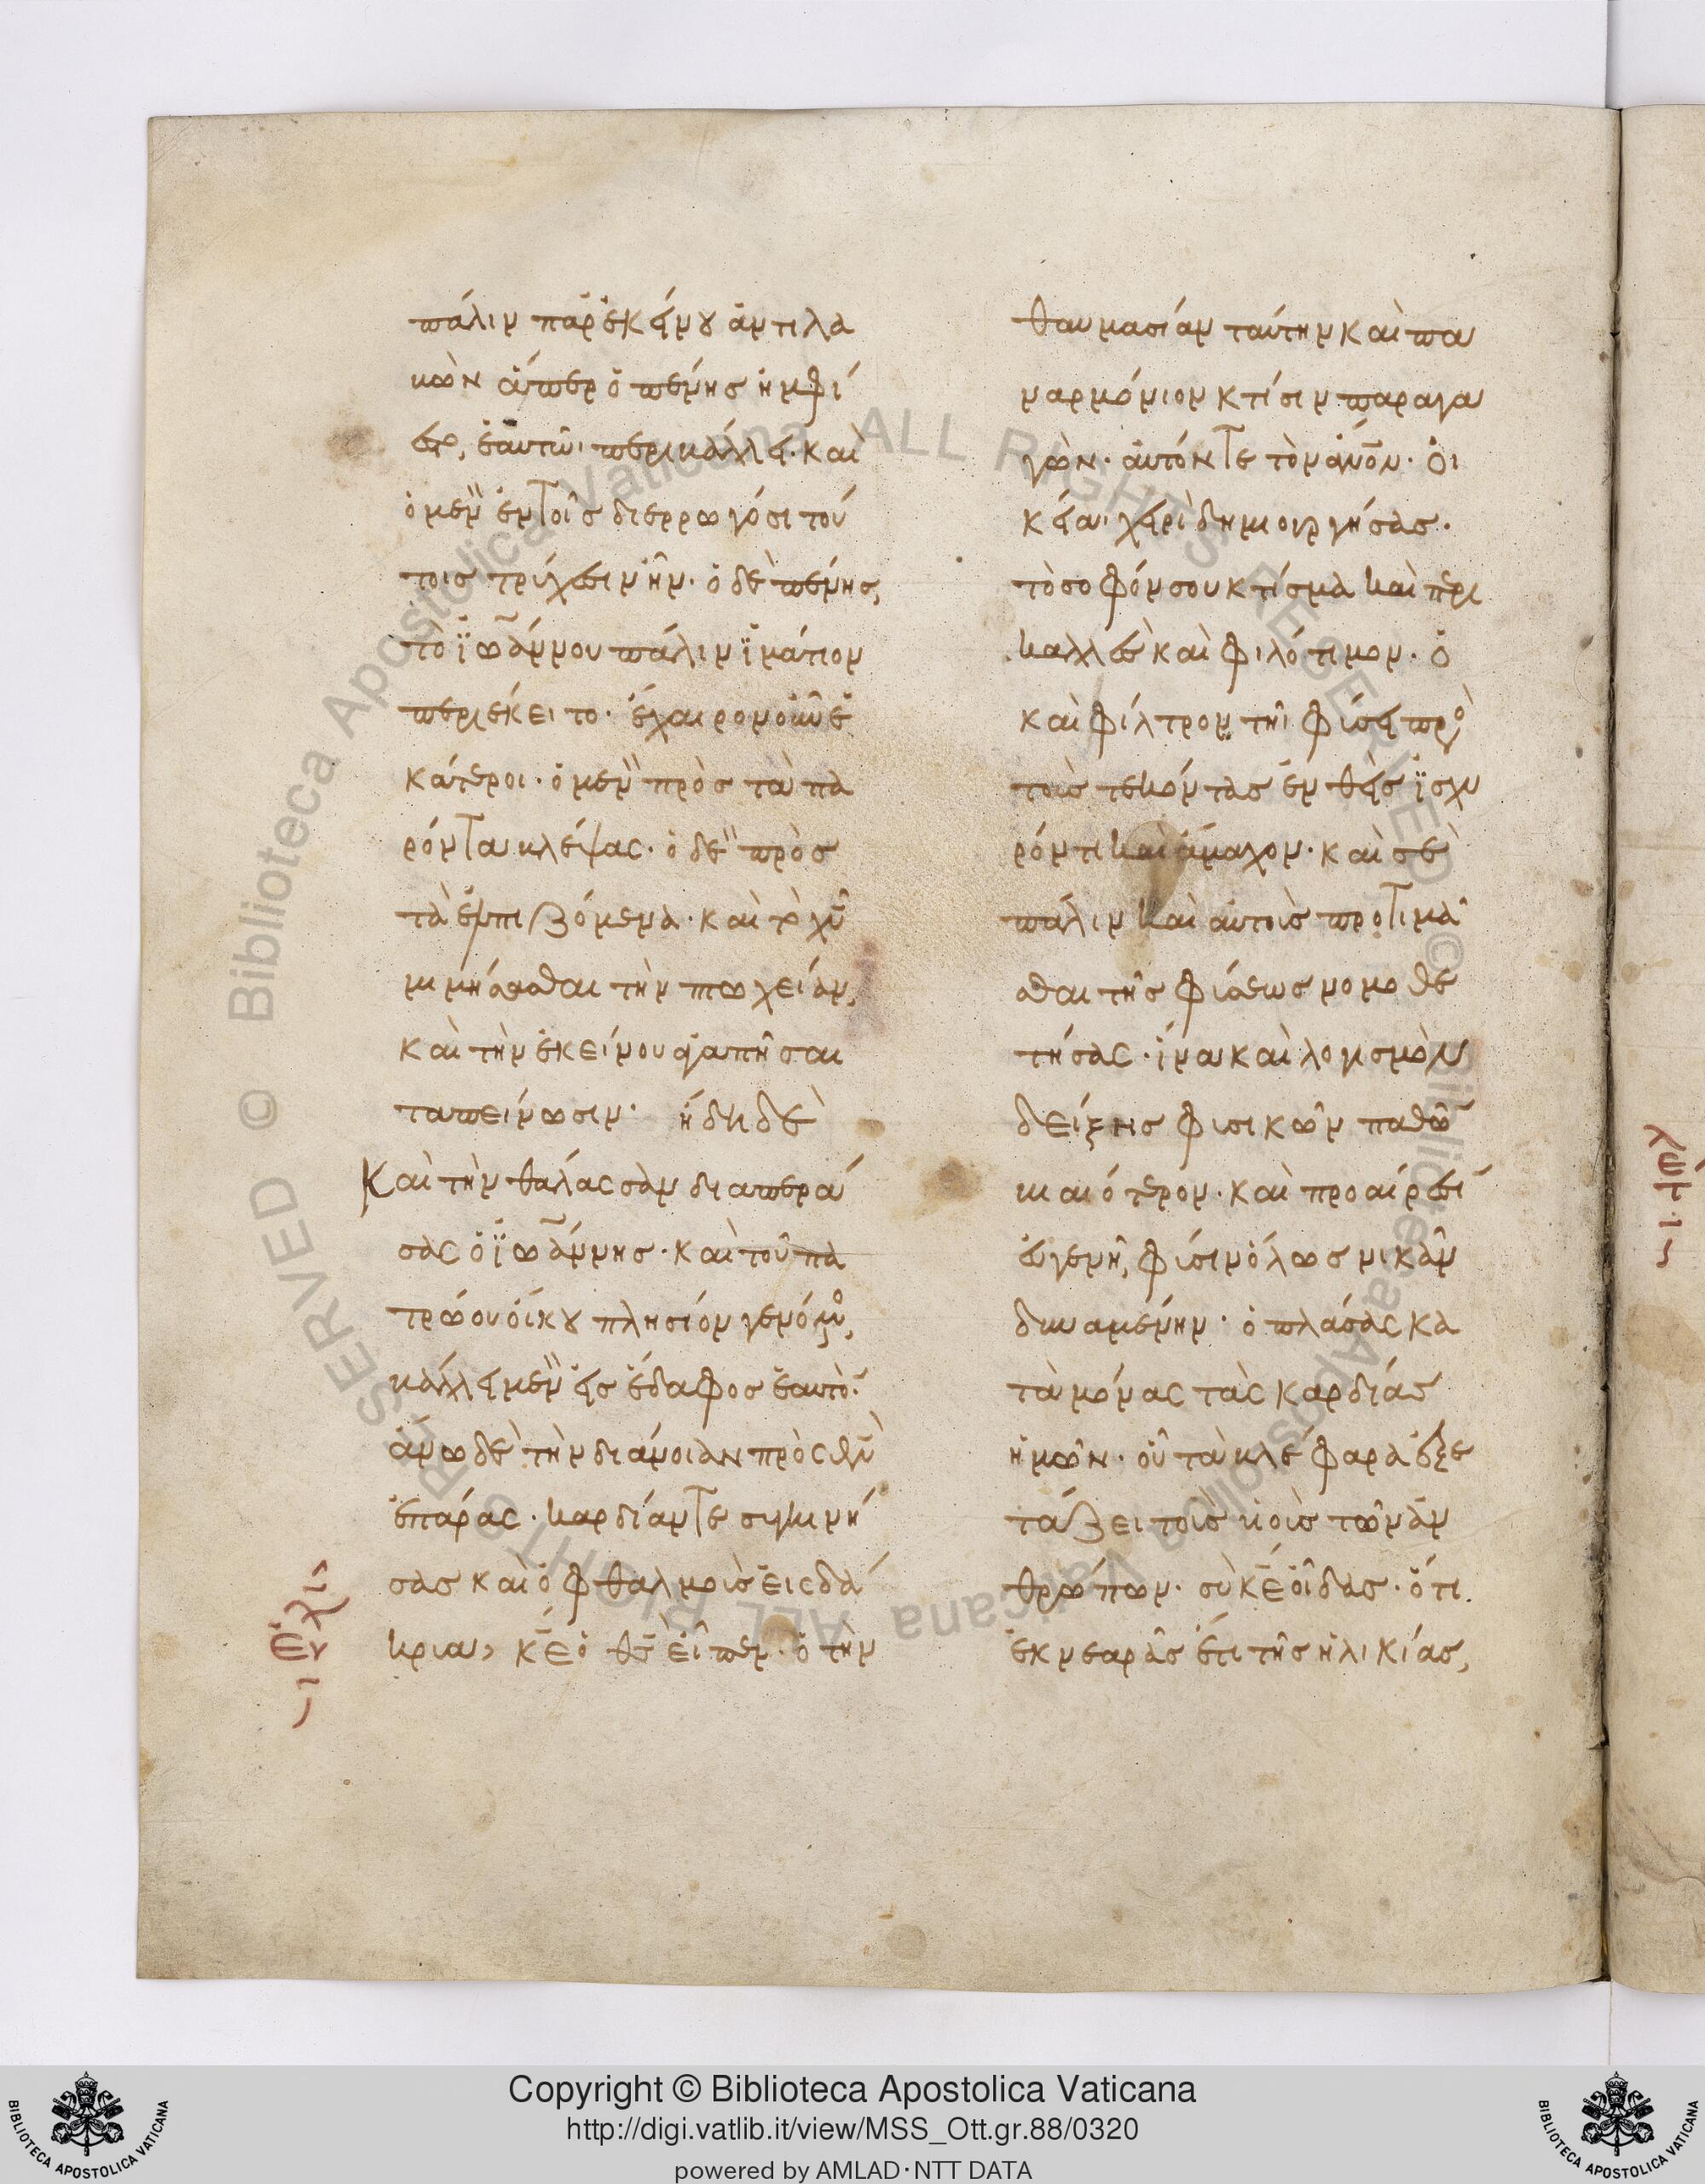 πάλιν παρ' ἐκείνου ἀντιλα
βὼν ἅπερ ὁ πένης ἠμφί
εστο, ἑαυτῶ περιβάλλει· καὶ
ὁ μὲν ἐν τοῖς διερρωγόσι τού
τοις τρύχεσιν ἦν· ὁ δὲ πένης,
τὸ ϊω̃άννου πάλιν ϊμάτιον
περιέκειτο· ἔχαιρον οὖν ἑ
κάτεροι· ὁ μὲν πρὸς τὰ πα
ρόντα βλέψας· ὁ δὲ πρὸς
τὰ ἐλπιζόμενα· καὶ τὸ χῦ
μιμήσασθαι τὴν πτωχείαν,
καὶ τὴν ἐκείνου ἀγαπῆσαι
ταπείνωσιν· ἤδη δὲ
Καὶ τὴν θάλασσαν διαπερά
σας ὁ ϊω̃άννης· καὶ τοῦ πα
τρώου οἴκου πλησίον γενόμενος,
βάλλει μὲν εἰς ἔδαφος ἑαυτό·
ἄνω δὲ τὴν διάνοιαν πρὸς θν̄
ἐπάρας· καρδίαν τε συγκινή
σας καὶ ὀφθαλμοὺς εἰς δά
κρυα, κε̄ ὁ θσ̄ εἶπεν· ὁ τὴν
θαυμασίαν ταύτην καὶ πα
ναρμόνιον κτίσιν παραγα
γὼν· αὐτόν τε τὸν ἄνο̄ν· οἰ
κείαι χειρὶ δημιουργήσας·
τὸ σοφόν σου κτίσμα καὶ περι
καλλὲς καὶ φιλότιμον· ὁ
καὶ φίλτρον τῆι φύσει πρὸς
τοὺς τεκόντας ἐνθεὶς ϊσχυ
ρόν τι καὶ ἄμαχον· καὶ σὲ
πάλιν καὶ αὐτοὺς προτιμᾶ
σθαι τῆς φύσεως νομοθε
τήσας· ἵνα καὶ λογισμὸν
δείξηις φυσικῶν παθῶ̄
βιαιότερον· καὶ προαίρεσι
εὐγενῆ, φύσιν ὅλως νικᾶν
δυναμένην· ὁ πλάσας κα
τὰ μόνας τὰς καρδίας
ἡμῶν· οὗ τὰ βλέφαρα ἐξε
τάζει τοὺς υἱοὺς τῶν ἀν
θρώπων· σὺ κε̄ οἶδας· ὅτι
ἐκ νεαρᾶς ἔτι τῆς ἡλικίας,
Copyright © Biblioteca Apostolica Vaticana
http://digi.vatlib.it/view/MSS_Ott.gr.88/0320
powered by AMLAD·NTT DATA
BIBLIOTECA APOSTOLICA VATICANA
BIBLIOTECA APOSTOLICA VATICANA